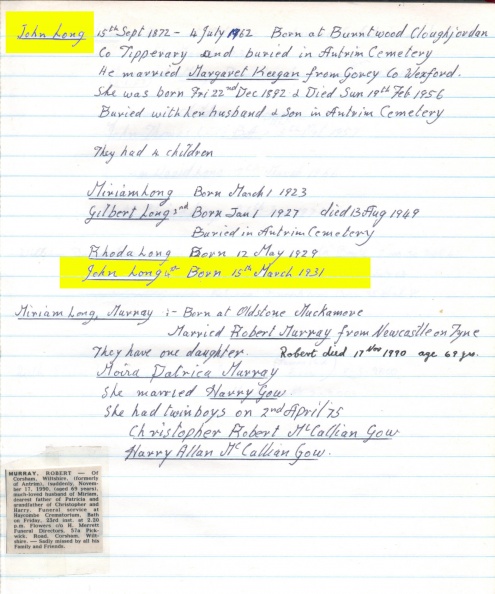 John Long 15th Sept 1872 - 4 July 1962 Born at Burntwood Cloughjordan
Co Tipperary and buried in Antrim Cemetery
He married Margaret Keegan from Gorey Co Wexford.
She was born Fri 22nd Dec 1892 & Died Sun 19th Feb 1956
Buried with her husband & Son in Antrim Cemetery
They had 4 children
Miriam Long Born March 1 1923
Gilbert Long 2nd Born Jan 1 1927 died 13 Aug 1949
Buried in Antrim Cemetery
Rhoda Long Born 12 May 1929
John Long 4th Born 15th March 1931
Miriam Long, Murray :- Born at Oldstone Muckamore
Married Robert Murray from Newcastle on Tyne
They have one daughter. Robert died 17 Nov 1990 age 69 yrs.
Moira Patrica Murray
She married Harry Gow.
She had twin boys on 2nd April 75
Christopher Robert McCallian Gow
Harry Allan McCallian Gow.
MURRAY, ROBERT — Of
Corsham, Wiltshire, (formerly
of Antrim), suddenly, Novem-
ber 17, 1990, (aged 69 years),
much-loved husband of Miriam,
dearest father of Patricia and
grandfather of Christopher and
Harry. Funeral service at
Haycombe Crematorium, Bath
on Friday, 23rd inst. at 2.20
p.m. Flowers c/o H. Merrett
Funeral Directors, 57a Pick-
wick, Road, Corsham, Wilt-
shire. — Sadly missed by all his
Family and Friends.